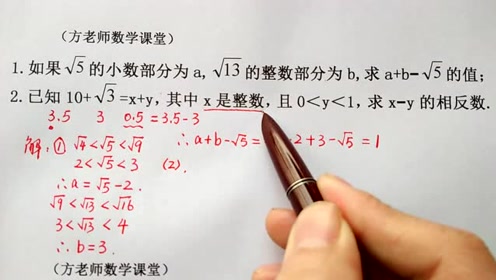 （方老师数学课堂）
1. 如果√5的小数部分为a,√13的整数部分为b,求a+b-√5的值;
2. 已知10+√3=x+y,其中x是整数,且0＜y＜1,求x-y的相反数.
3.5 3 0.5 = 3.5-3
解: ① √4<√5<√9 ∴ a+b-√5= -2+3-√5 = 1
2<√5<3 (2).
∴ a = √5-2.
√9<√13<√16
3<√13<4
∴ b=3.
（方老师数学课堂）